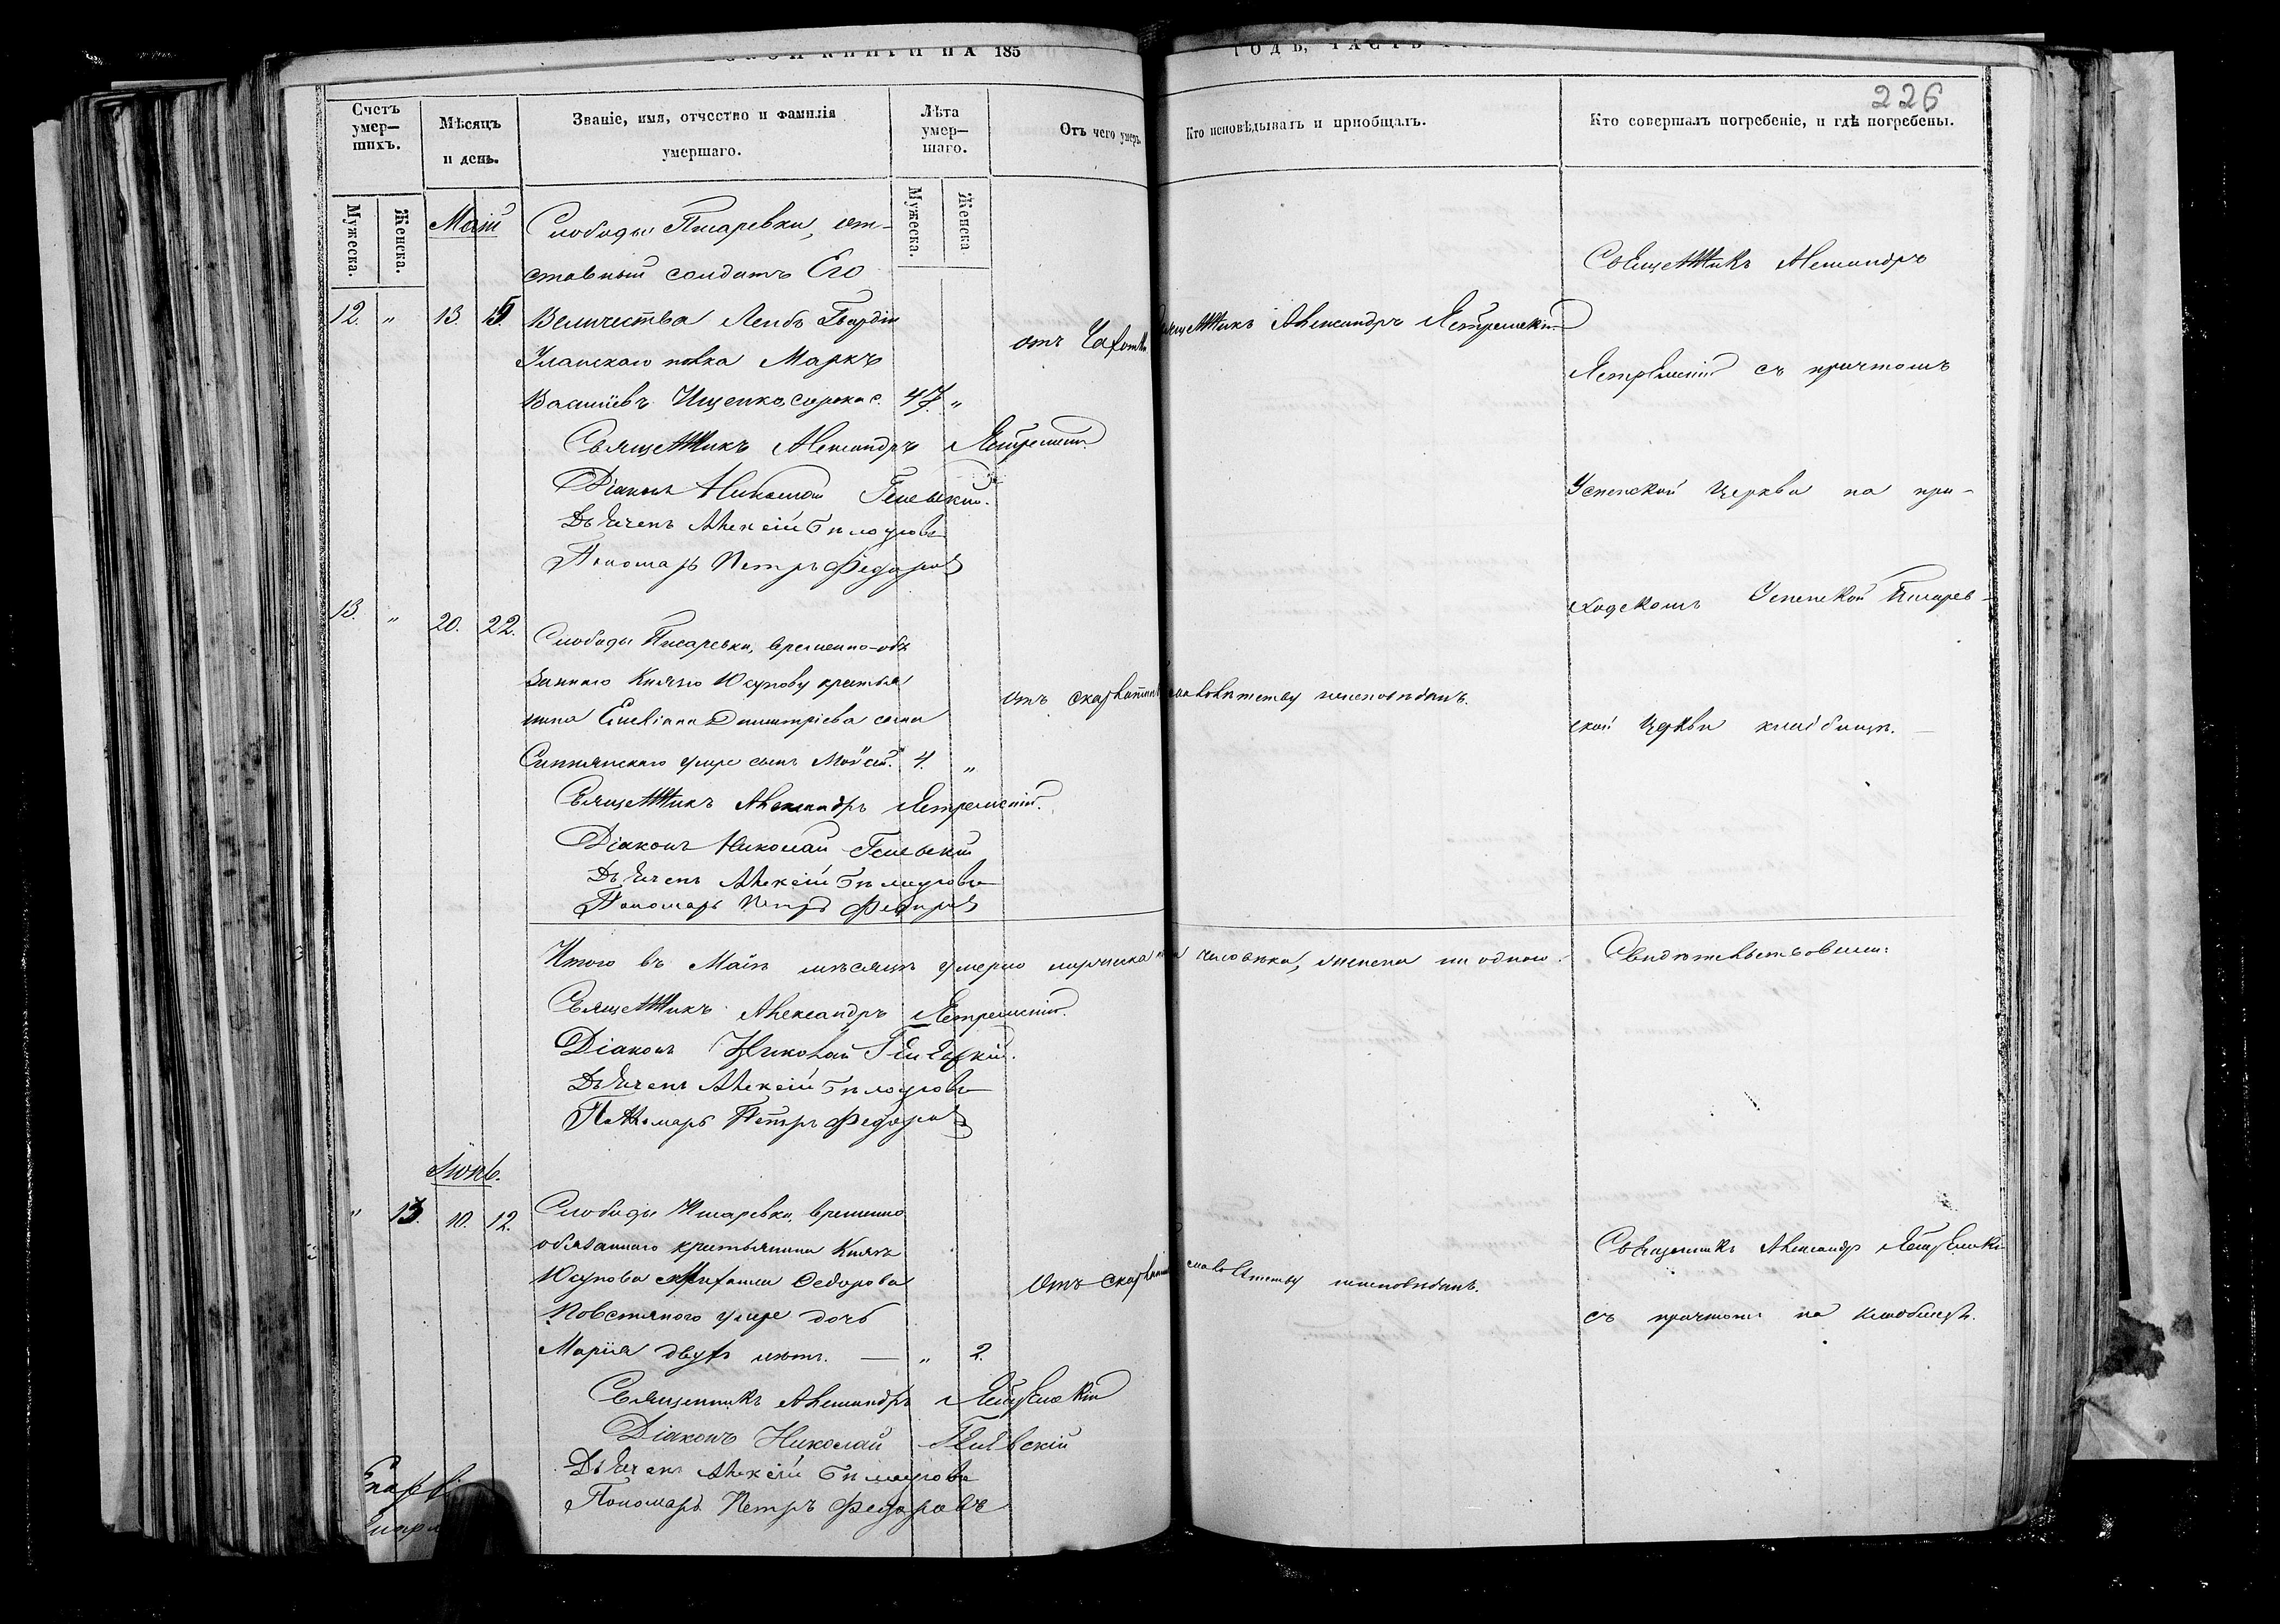 КНИГИ НА 185
ГОДЪ, ЧАСТЬ
226
Счетъ умер-шихъ.
Мѣсяцъ и день.
Званіе, имя, отчество и фамилія умершаго.
Лѣта умер-шаго.
Отъ чего умеръ.
Кто исповѣдывалъ и пріобщалъ.
Кто совершалъ погребеніе, и гдѣ погребены.
Мужеска.
Женска.
Мужеска.
Женска
Маій
Слободы Писаревки, от-
ставный солдатъ Его
12. " 13. 15. Величества Лейбъ Гвардіи
Уланскаго полка Маркъ
Василіевъ Ищенко, сорока с. 47. "
отъ Чахотки
Священникъ Александръ Ястремскій
Священникъ Александръ
Ястремскій съ причтомъ
Успенской Церкви на при-
ходскомъ Успенской Писарев-
ской Церкви кладбищѣ.
Священникъ Александръ Ястремскій
Діаконъ Николай
Дьячекъ Алексій Бѣлоусовъ
Пономарь Петръ Федоровъ
13. " 20. 22. Слободы Писаревки, временно-обя
заннаго Князю Юсупову крестья
нина Емеліана Димитріева сына
умре сынъ Моѵсей. 4. "
отъ скарлатины малолѣтству неисповѣданъ.
Священникъ Александръ Ястремскій.
Діаконъ Николай
Дьячекъ Алексій Бѣлоусовъ
Пономарь Петръ Федоровъ
Итого въ Маіѣ мѣсяцѣ умерло мужеска два человѣка, женска ни одного.
Свидѣтельствовали:
Священникъ Александръ Ястремскій.
Діаконъ Николай
Дьячекъ Алексій Бѣлоусовъ
Пономарь Петръ Федоровъ
Іюнь.
" 13. 10. 12. Слободы Писаревки, временно
обязаннаго крестьянина Князя
Юсупова Михаила Федорова
Повстянаго умре дочь
Марія двухъ лѣтъ. — " 2.
Отъ скарлатины малолѣтству неисповѣданъ.
Священникъ Александръ Ястремскій
съ причтомъ на кладбищѣ.
Священникъ Александръ Ястремскій
Діаконъ Николай
Дьячекъ Алексій Бѣлоусовъ
Пономарь Петръ Федоровъ